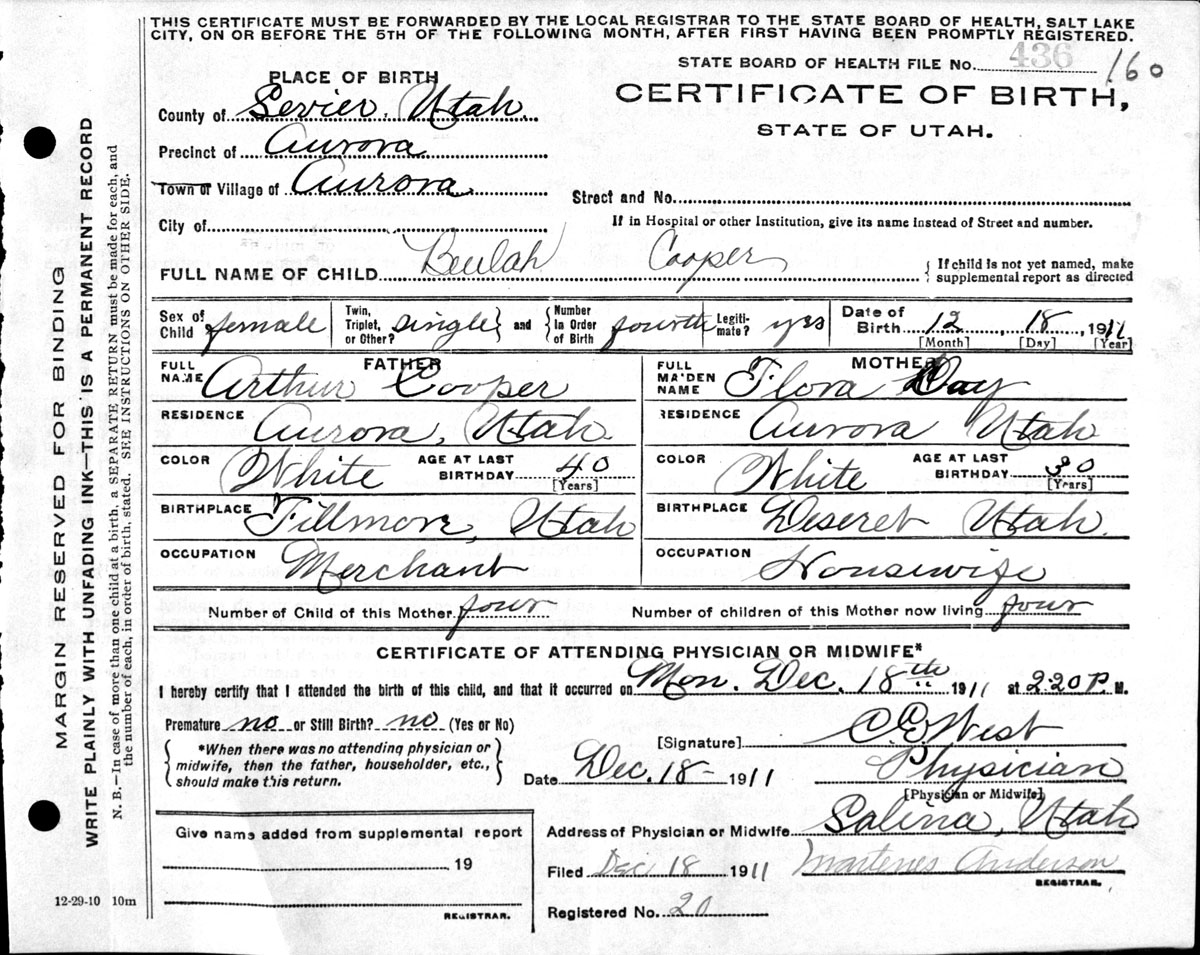 THIS CERTIFICATE MUST BE FORWARDED BY THE LOCAL REGISTRAR TO THE STATE BOARD OF HEALTH, SALT LAKE
CITY, ON OR BEFORE THE 5TH OF THE FOLLOWING MONTH, AFTER FIRST HAVING BEEN PROMPTLY REGISTERED.
STATE BOARD OF HEALTH FILE No. 436 160
PLACE OF BIRTH
CERTIFICATE OF BIRTH,
STATE OF UTAH.
County of Sevier, Utah.
Precinct of Aurora
Town or Village of Aurora
Street and No.
If in Hospital or other Institution, give its name instead of Street and number.
City of
FULL NAME OF CHILD Beulah Cooper
{ If child is not yet named, make
supplemental report as directed
Sex of Child female
Twin, Triplet, or Other? single } and { Number In Order of Birth fourth
Legiti- mate? yes
Date of Birth 12, 18, 1911
[Month] [Day] [Year]
FATHER
FULL NAME Arthur Cooper
RESIDENCE Aurora, Utah.
COLOR White AGE AT LAST BIRTHDAY 40 [Years]
BIRTHPLACE Fillmore, Utah
OCCUPATION Merchant
MOTHER
FULL MAIDEN NAME Flora Day
RESIDENCE Aurora Utah
COLOR White AGE AT LAST BIRTHDAY 30 [Years]
BIRTHPLACE Deseret Utah.
OCCUPATION Housewife
Number of Child of this Mother four Number of children of this Mother now living four
CERTIFICATE OF ATTENDING PHYSICIAN OR MIDWIFE*
I hereby certify that I attended the birth of this child, and that it occurred on Mon. Dec. 18th 1911 at 2:20 P. M.
Premature no or Still Birth? no (Yes or No)
{ *When there was no attending physician or
midwife, then the father, householder, etc.,
should make this return. }
[Signature] C E West
Date Dec. 18 - 1911 Physician
[Physician or Midwife]
Address of Physician or Midwife Salina, Utah
Filed Dec 18 1911 Anderson
REGISTRAR.
Registered No. 20
Give name added from supplemental report
19
REGISTRAR.
12-29-10 10m
MARGIN RESERVED FOR BINDING
WRITE PLAINLY WITH UNFADING INK—THIS IS A PERMANENT RECORD
N. B.—In case of more than one child at a birth, a SEPARATE RETURN must be made for each, and
the number of each, in order of birth, stated. SEE INSTRUCTIONS ON OTHER SIDE.